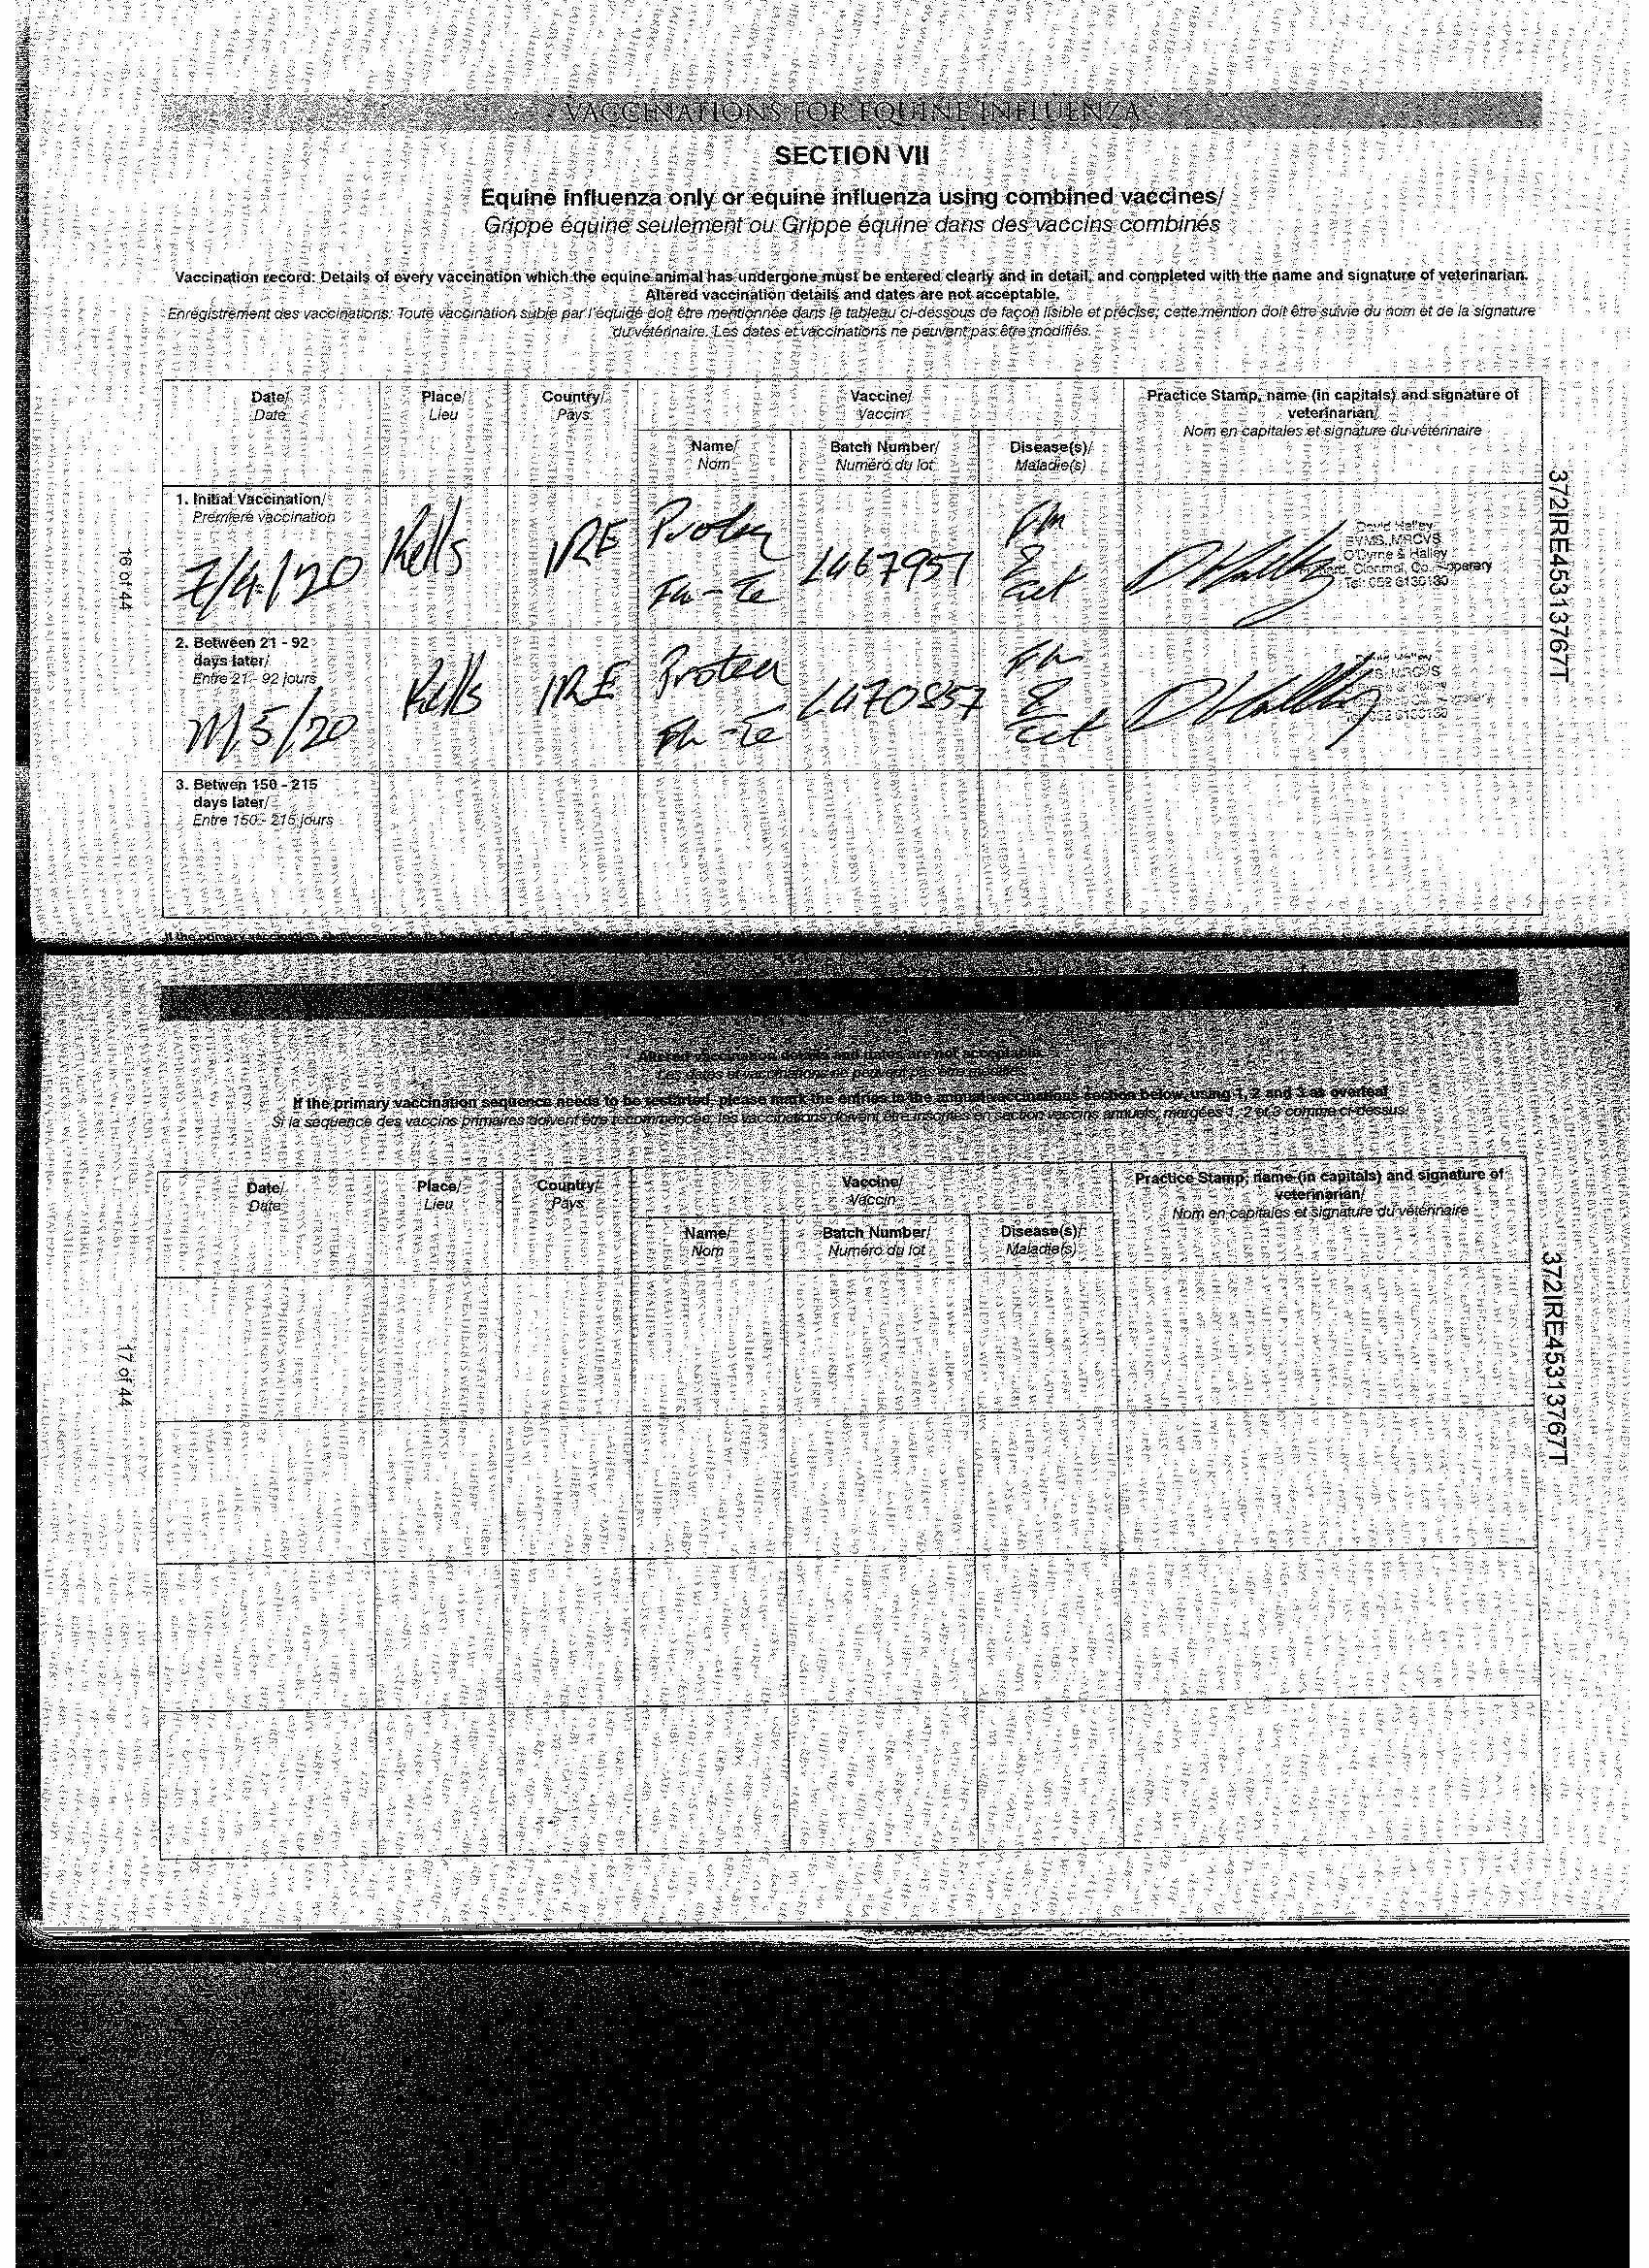 VACCINATIONS FOR EQUINE INFLUENZA
SECTION VII
Equine influenza only or equine influenza using combined vaccines/
Grippe équine seulement ou Grippe équine dans des vaccins combinés
Vaccination record: Details of every vaccination which the equine animal has undergone must be entered clearly and in detail, and completed with the name and signature of veterinarian.
Altered vaccination details and dates are not acceptable.
Enregistrement des vaccinations: Toute vaccination subie par l'équidé doit être mentionnée dans le tableau ci-dessous de façon lisible et précise; cette mention doit être suivie du nom et de la signature
du vétérinaire. Les dates et vaccinations ne peuvent pas être modifiés.
Date/ Place/ Country/ Vaccine/ Practice Stamp, name (in capitals) and signature of
Date Lieu Pays Vaccin veterinarian/
Nom en capitales et signature du vétérinaire
Name/ Batch Number/ Disease(s)/
Nom Numéro du lot Maladie(s)
1. Initial Vaccination/
Première vaccination
7/4/20 Kells IRE Proteq L467951
&
David Halley
MRCVS
O'Byrne & Halley
Clonmel, Co. Tipperary
2. Between 21 - 92
days later/
Entre 21 - 92 jours
5/20 Kells IRE Proteq L470857
&
MRCVS
3. Betwen 150 - 215
days later/
Entre 150 - 215 jours
16 of 44
372IRE45313767T
Altered vaccination details and dates are not acceptable.
Les dates et vaccinations ne peuvent pas être modifiés
If the primary vaccination sequence needs to be restarted, please mark the entries in the annual vaccinations section below, using 1, 2 and 3 as overleaf
Si la séquence des vaccins primaires doivent être recommencée, les vaccinations doivent être inscrites en section vaccins annuels, margées 1, 2 et 3 comme ci-dessus
Date/ Place/ Country/ Vaccine/ Practice Stamp, name (in capitals) and signature of
Date Lieu Pays Vaccin veterinarian/
Nom en capitales et signature du vétérinaire
Name/ Batch Number/ Disease(s)/
Nom Numéro du lot Maladie(s)
17 of 44
372IRE45313767T